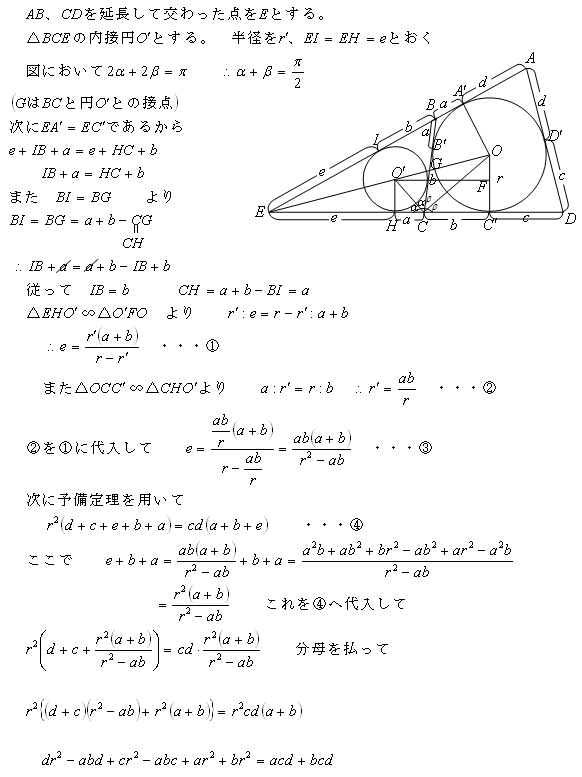 AB、CDを延長して交わった点をEとする。
△BCEの内接円O'とする。 半径をr'、EI = EH = eとおく
図において2α + 2β = π ∴ α + β = π/2
(GはBCと円O'との接点)
次にEA' = EC'であるから
e + IB + a = e + HC + b
IB + a = HC + b
また BI = BG より
BI = BG = a + b − CG
||
CH
∴ IB + a = a + b − IB + b
従って IB = b CH = a + b − BI = a
△EHO' ∽ △O'FO より r' : e = r − r' : a + b
∴ e = r'(a + b)/(r − r') ・・・①
また△OCC' ∽ △CHO'より a : r' = r : b ∴ r' = ab/r ・・・②
②を①に代入して e = (ab/r (a + b))/(r − ab/r) = ab(a + b)/(r² − ab) ・・・③
次に予備定理を用いて
r²(d + c + e + b + a) = cd(a + b + e) ・・・④
ここで e + b + a = ab(a + b)/(r² − ab) + b + a = (a²b + ab² + br² − ab² + ar² − a²b)/(r² − ab)
= r²(a + b)/(r² − ab) これを④へ代入して
r²(d + c + r²(a + b)/(r² − ab)) = cd · r²(a + b)/(r² − ab) 分母を払って
r²{(d + c)(r² − ab) + r²(a + b)} = r²cd(a + b)
dr² − abd + cr² − abc + ar² + br² = acd + bcd
A
d
A'
a
B
d
b
a
I
B'
D'
e
G
O
O'
b
F
r
c
E
H
C
C''
D
e
a
b
c